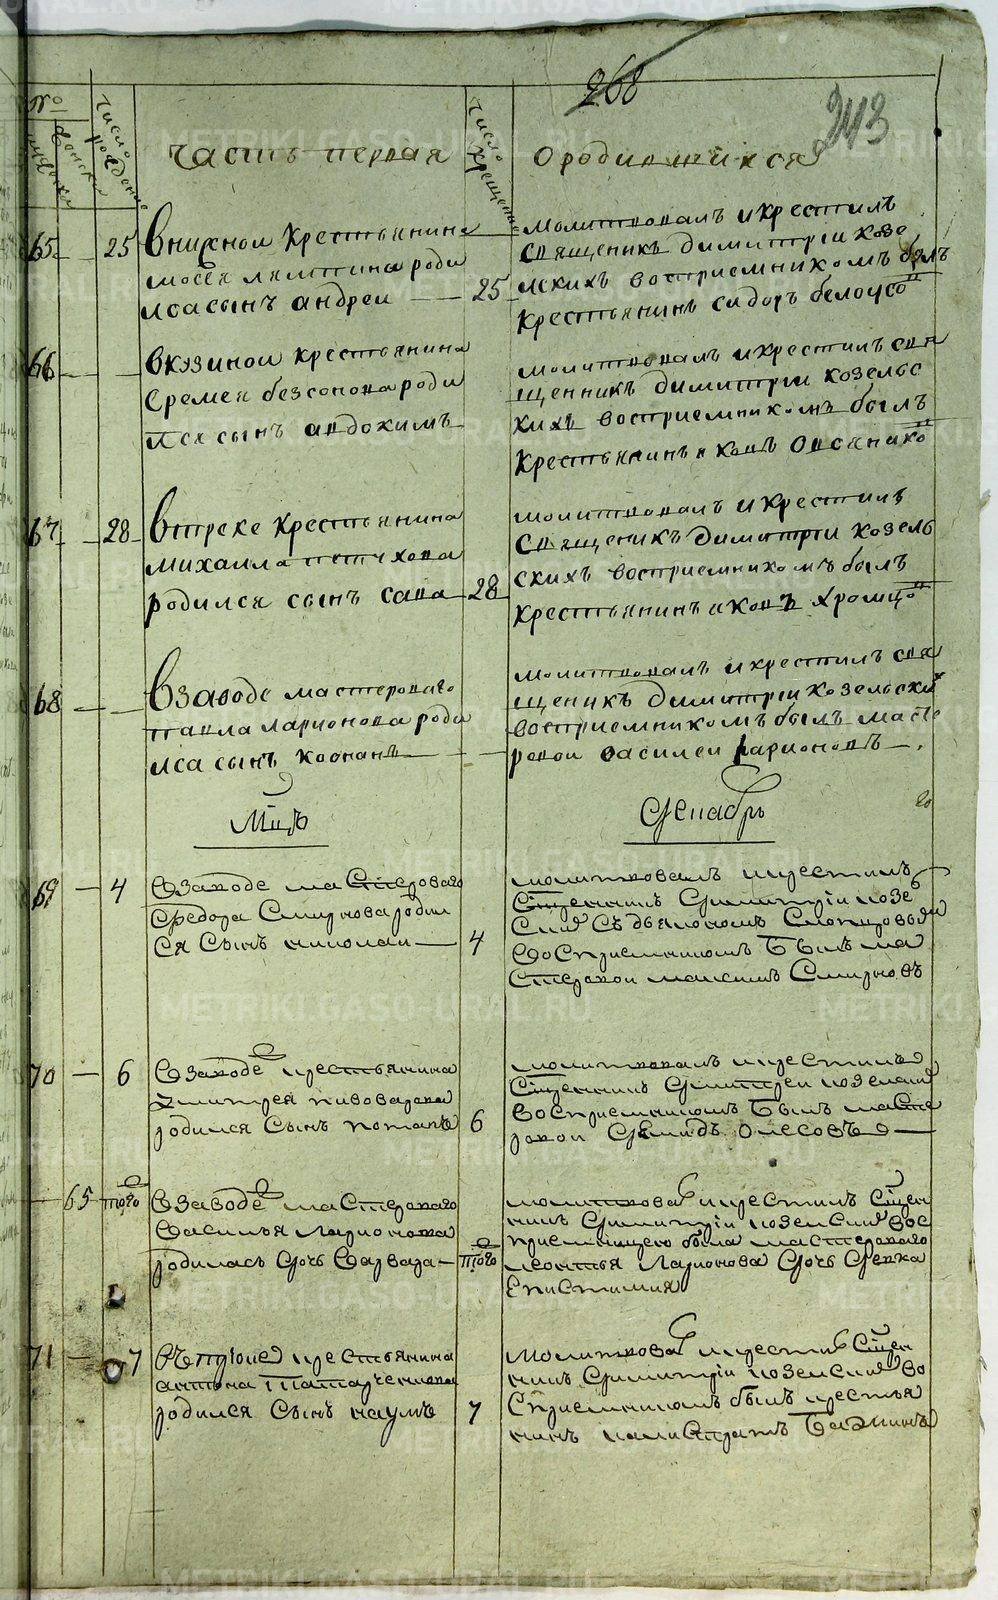 268
243
№
мужеска
женска
число рождения
часть первая
число крещения
о родившихся
65
25
Внижнои крестьянина
мосея ляптина роди
лса сынъ андреи
25
молитвовалъ и крестилъ
священикъ димитріи козе
лскихъ восприемникомъ былъ
крестьянинъ сидоръ белоусо
66
Вкузинои крестьянина
Еремея безсонова роди
лся сынъ авдокимъ
молитвовалъ и крестилъ свя
щенникъ димитріи козельс
кихъ восприемникомъ былъ
крестьянинъ яковъ Овсянико
67
28
Втреке крестьянина
михаила петухова
родился сынъ сава
28
молитвовалъ и крестилъ
священикъ димитріи козель
скихъ восприемникомъ былъ
крестьянинъ яковъ хромцо
68
Взаводе мастероваго
павла ларионова роди
лса сынъ коонанъ
молитвовалъ и крестилъ свя
щеникъ димитріи козельски
восприемникомъ былъ масте
ровои василеи ларионовъ
Мцъ
Декабрь
69
4
Взаводе мастероваго
Федора Смирнова роди
ся Сынъ николаи
4
молитвовалъ и крестилъ
Сщенникъ Димитріи козе
Съ дьякономъ
Восприемникомъ Былъ ма
Стеровои максимъ Смирновъ
70
6
Взаводе крестьянина
Дмитрея пивоварова
родился Сынъ потапъ
6
молитвовалъ и крестилъ
Сщенникъ Димитреи козелски
Восприемникомъ Былъ масте
ровои Демидъ Олесовъ
65
того
Взаводе мастероваго
Василья Ларионова
родилась Дочь Варвара
того
молитвова и крестилъ Сщен
никъ Димитріи козелскии Вос
приемницею была мастероваго
леонтья Ларионова Дочь Девка
Епистимия
71
7
крестьянина
антона Татарченкова
родился Сынъ наумъ
7
Молитвова и крести Сщен
никъ Димитріи козелскии Во
Сприемникомъ былъ крестья
нинъ калистратъ Бажинъ